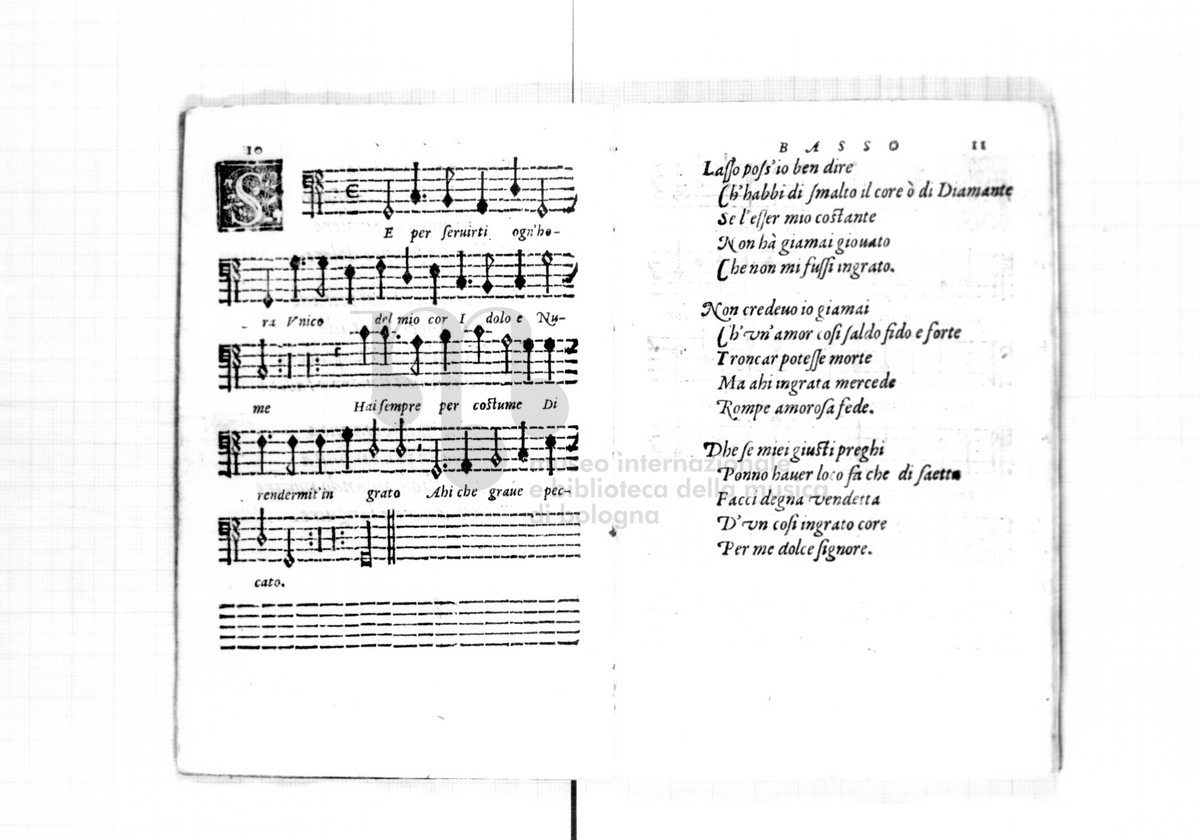 10
S
E per ſeruirti ogn'ho-
ra Vnico del mio cor I dolo e Nu-
me Hai ſempre per coſtume Di
rendermit'in grato Ahi che graue pec-
cato.
BASSO 11
Laſſo poſs'io ben dire
Ch'habbi di ſmalto il core ò di Diamante
Se l'eſſer mio coſtante
Non hà giamai giouato
Che non mi fuſſi ingrato.
Non credeuo io giamai
Ch'vn'amor coſi ſaldo fido e forte
Troncar poteſſe morte
Ma ahi ingrata mercede
Rompe amoroſa fede.
Dhe ſe miei giuſti preghi
Ponno hauer loco fà che di ſaetta
Facci degna vendetta
D'vn coſi ingrato core
Per me dolce ſignore.
museo internazionale
e biblioteca della musica
di bologna